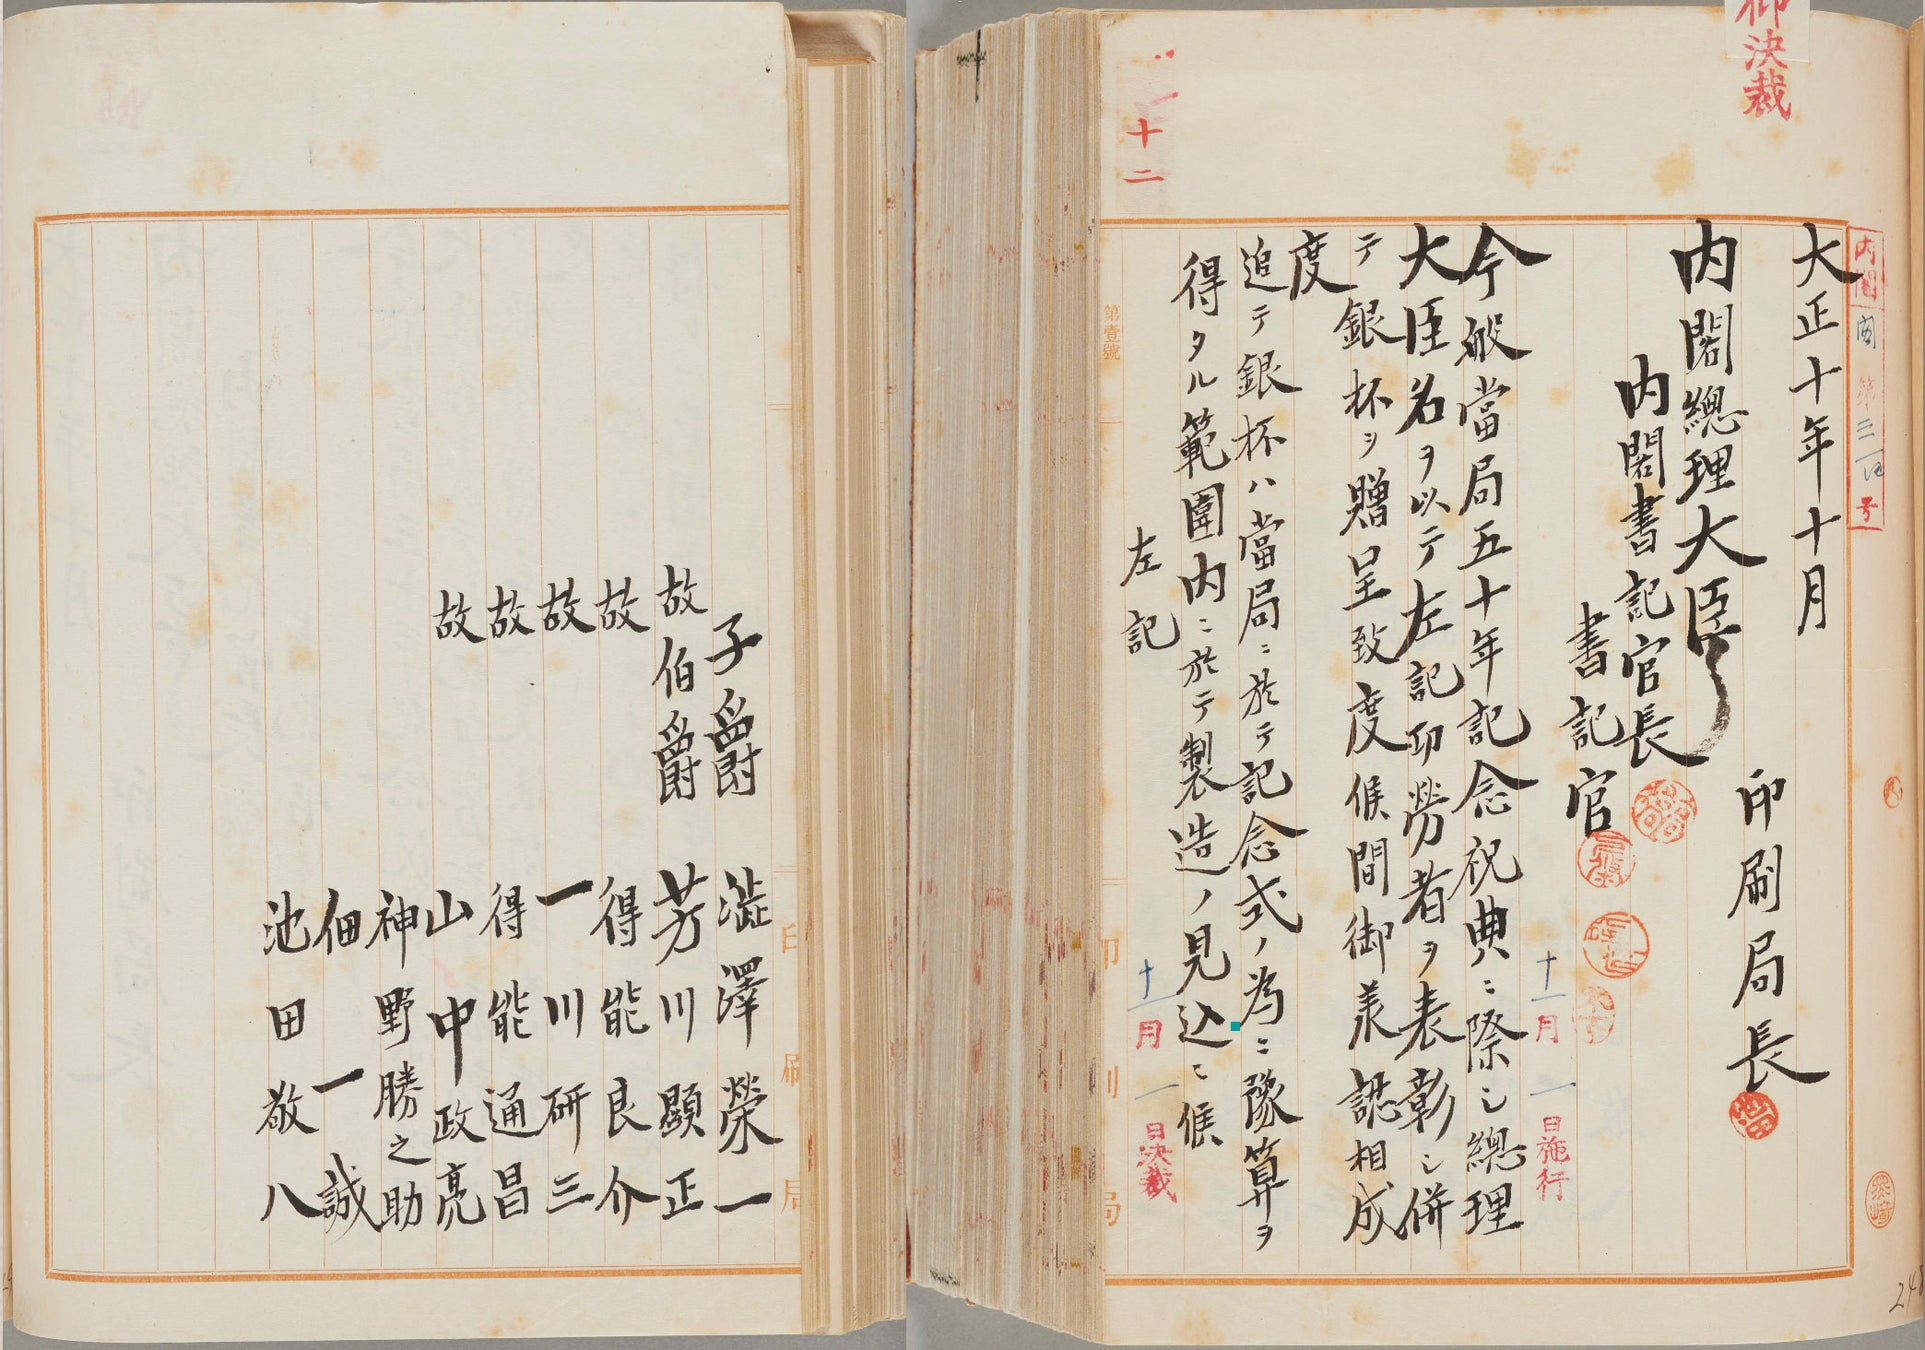 御決裁
内閣 閣 第三一 号
大正十年十月
印刷局長
内閣總理大臣
内閣書記官長
書記官
十一月一日施行
今般當局五十年記念祝典ニ際シ總理
大臣名ヲ以テ左記印勞者ヲ表彰シ併
テ銀杯ヲ贈呈致度候間御承認相成
度
追テ銀杯ハ當局ニ於テ記念式ノ為ニ豫算ヲ
得タル範圍内ニ於テ製造ノ見込ニ候
左記
十一月一日決裁
十二
第壹號
印刷局
248
子爵 澁澤榮一
故伯爵 芳川顯正
故 得能良介
故 一川研三
故 得能通昌
故 山中政亮
神野勝之助
佃一誠
池田敬八
印刷局